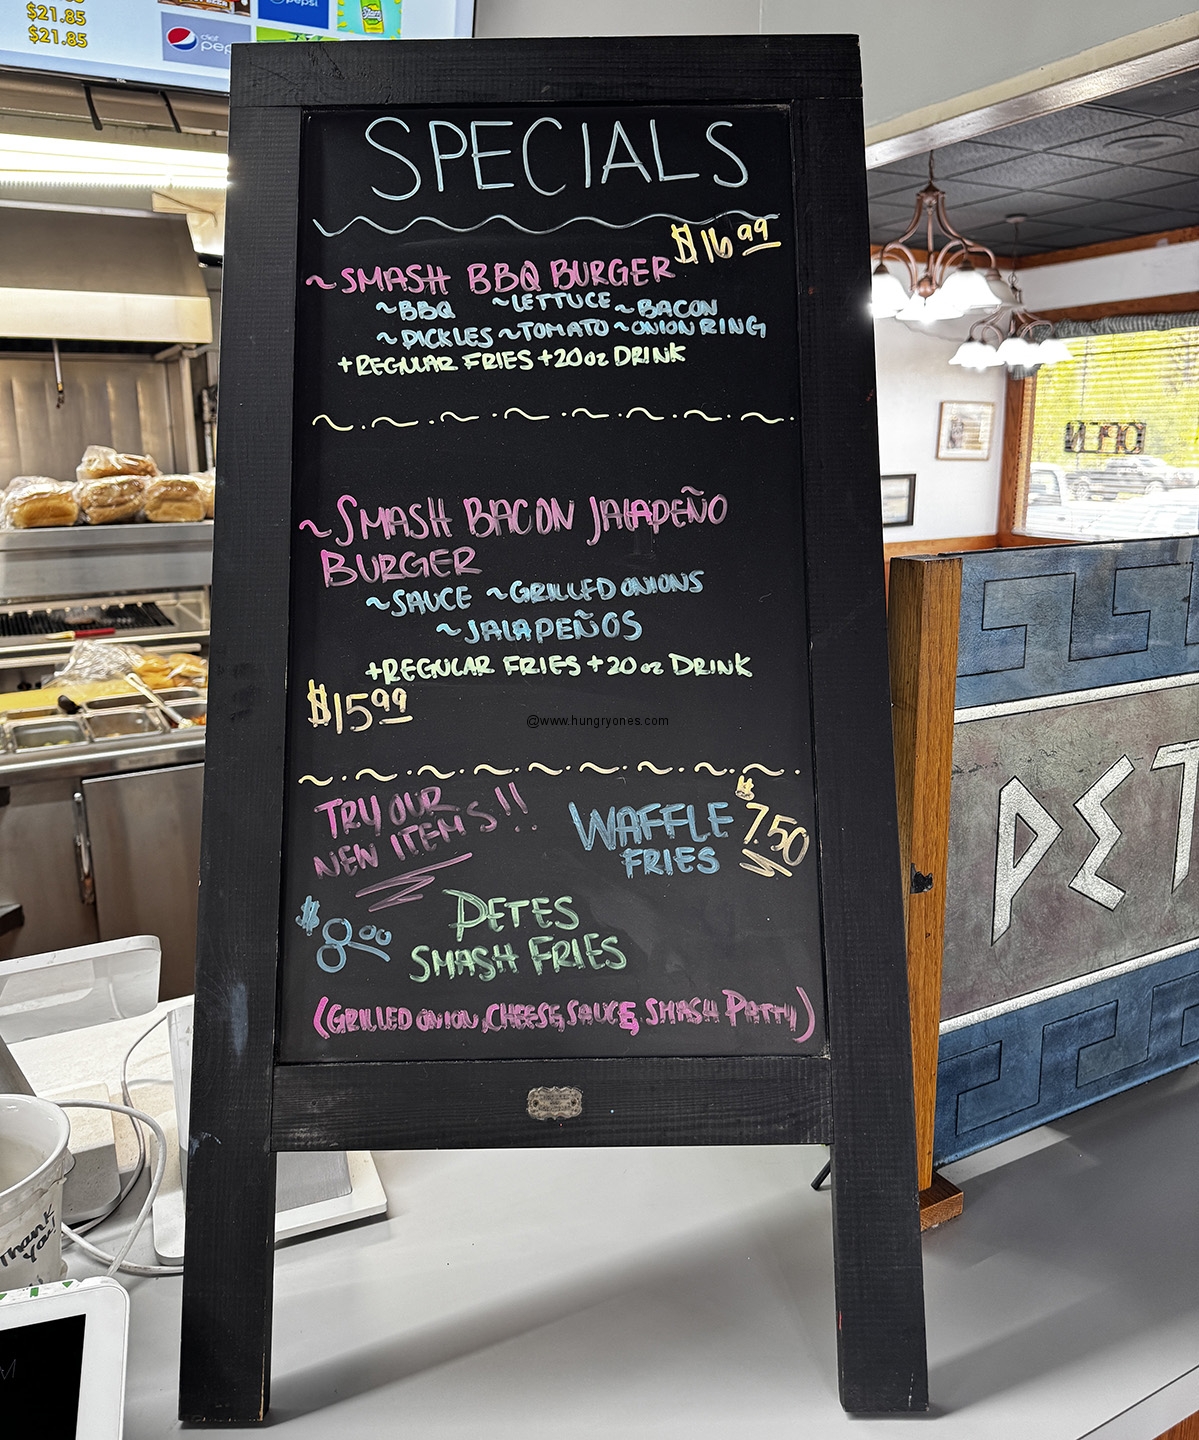 $21.85
$21.85
$21.85
pepsi
diet
pep
SPECIALS
$16.99
~SMASH BBQ BURGER
~BBQ ~LETTUCE ~BACON
~PICKLES ~TOMATO ~ONION RING
+REGULAR FRIES +20oz DRINK
~SMASH BACON JALAPEÑO
BURGER
~SAUCE ~GRILLED ONIONS
~JALAPEÑOS
+REGULAR FRIES +20oz DRINK
$15.99
@www.hungryones.com
TRY OUR
NEW ITEMS!!
WAFFLE
FRIES
$7.50
$8.00
PETES
SMASH FRIES
(GRILLED ONION, CHEESE, SAUCE, SMASH PATTY)
OPEN
PET
Thank
You!